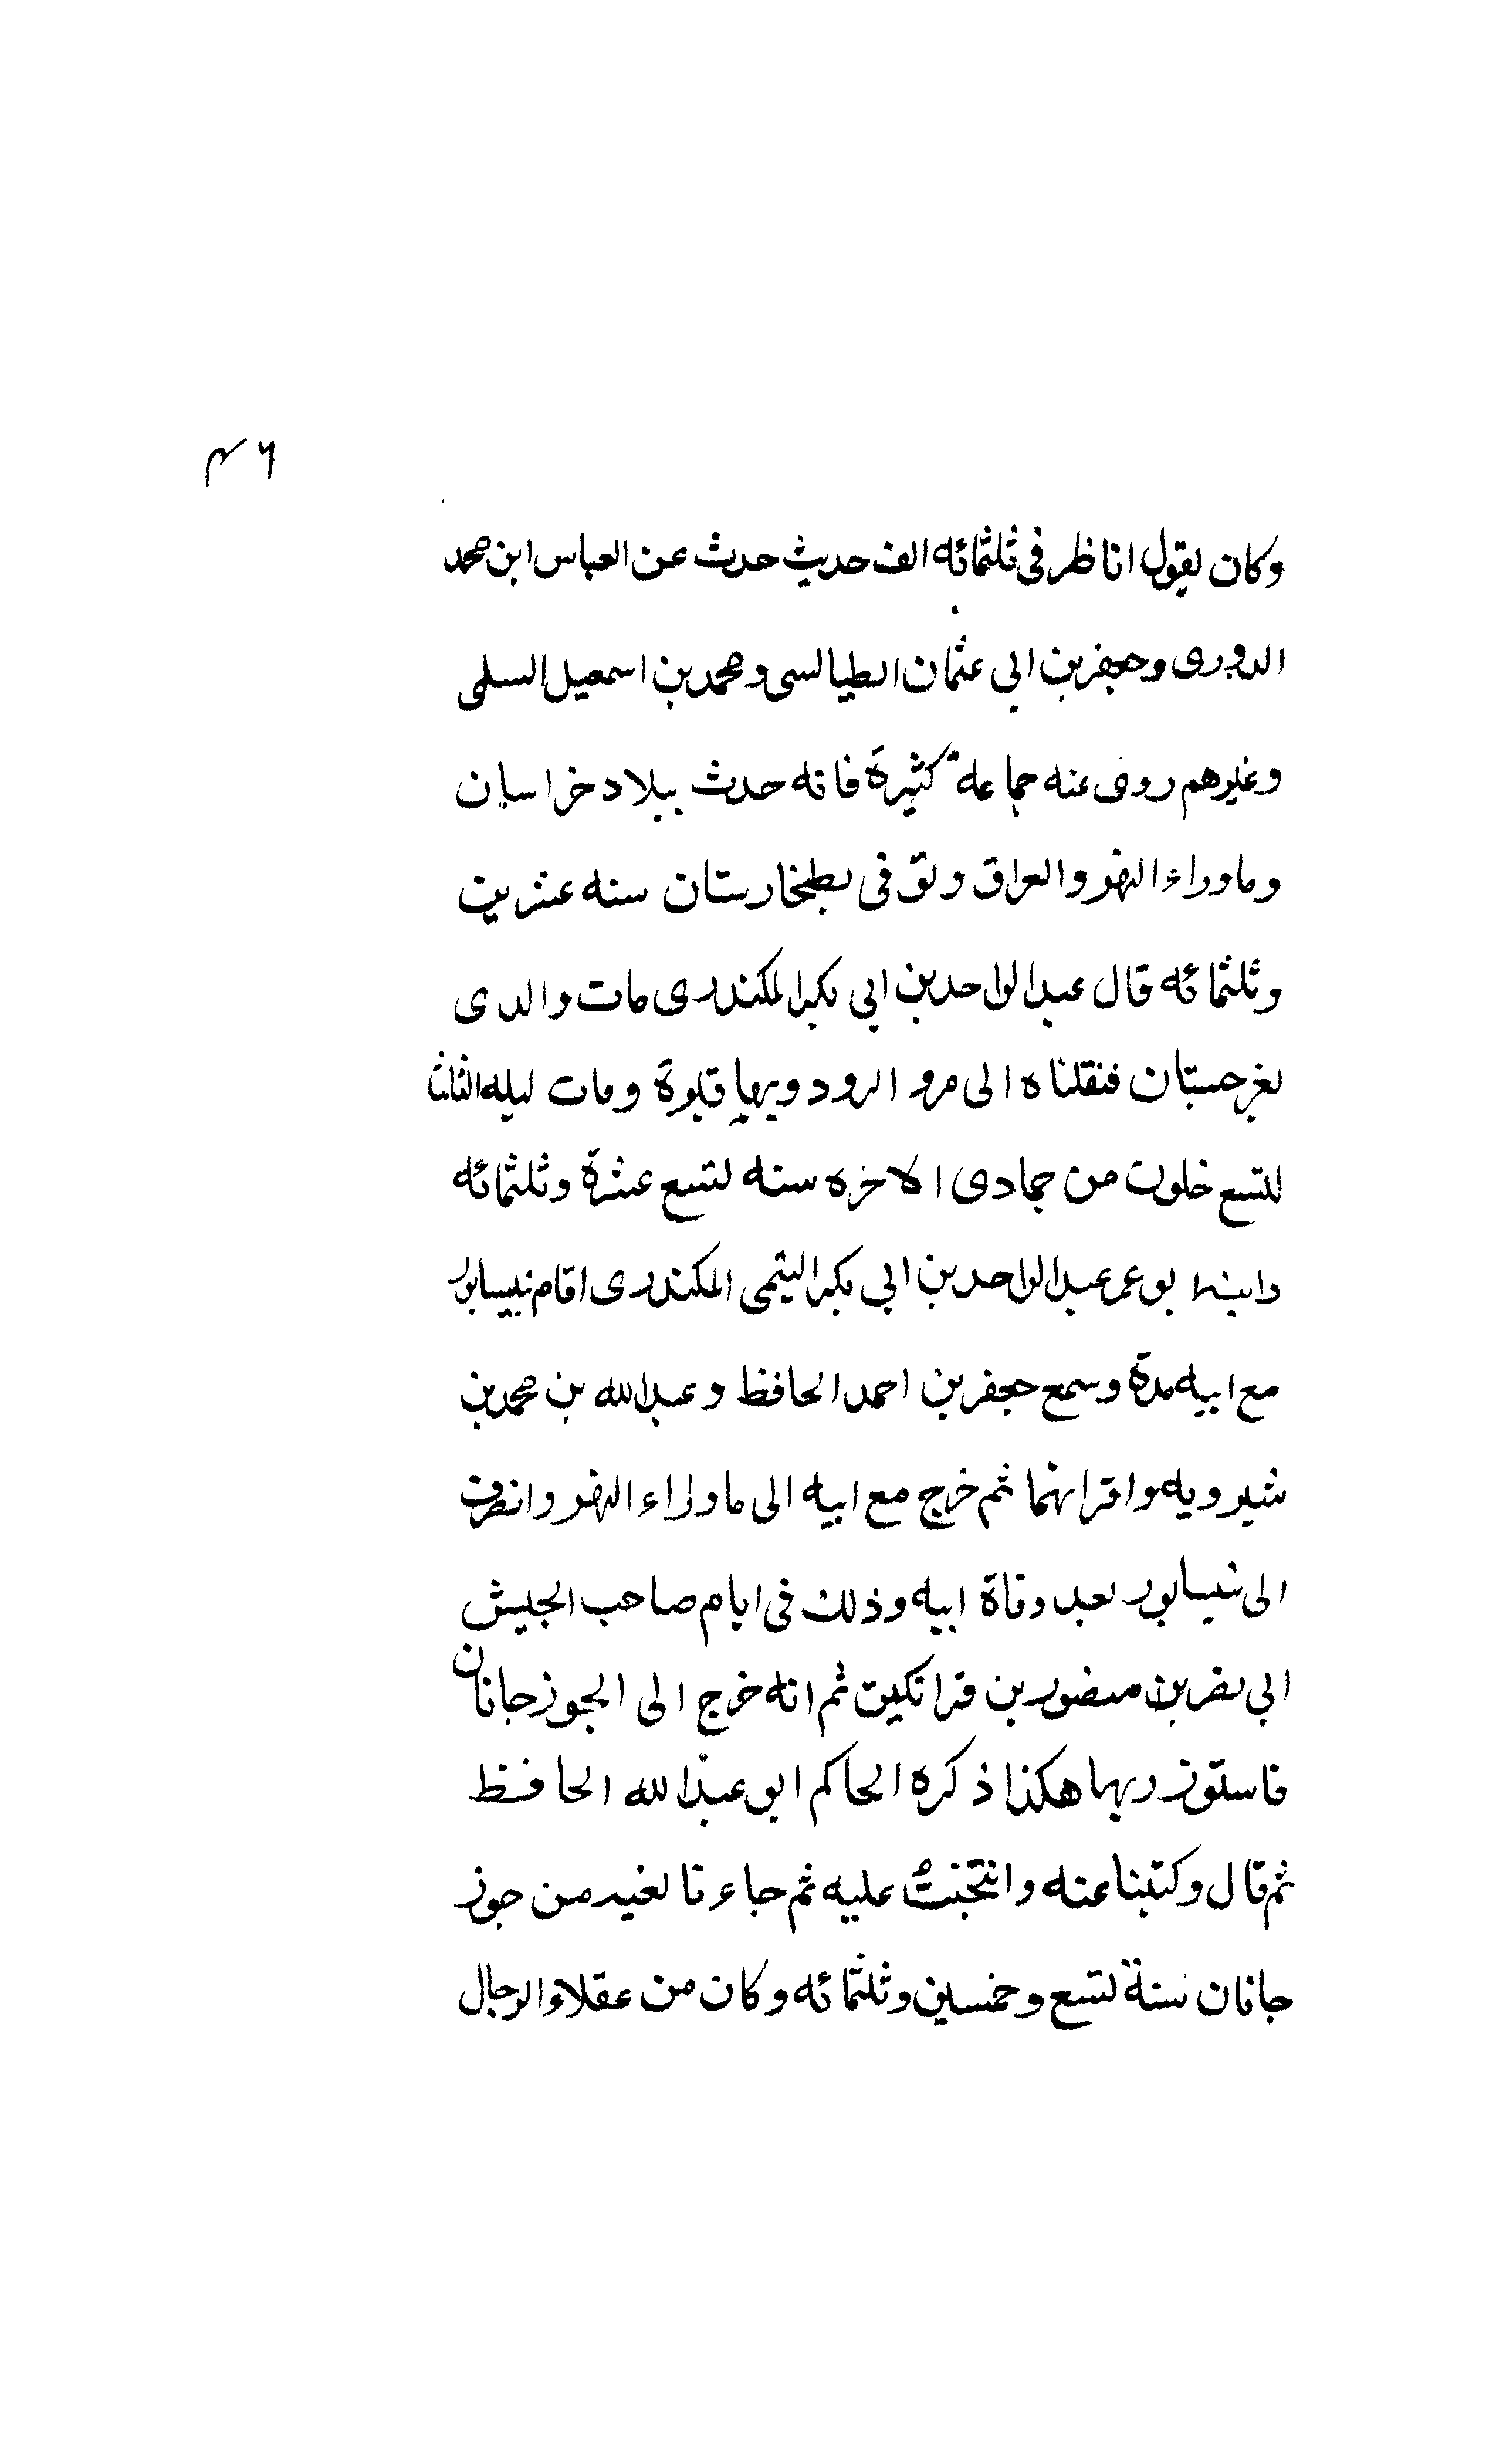 ٤٦
وكان يقول اناظر في ثلثمائه الف حديث حدث عن العباس ابن محمد
الدوري وجعفر بن ابي عثمان الطيالسي ومحمد بن اسمعيل السلمي
وغيرهم روى عنه جماعة كثيرة فانه حدث ببلاد خراسان
وماوراء النهر والعراق وتوفى بطخارستان سنه عشرين
وثلثمائه قال عبد الواحد بن ابي بكر المنكدرى مات والدى
بغرجستان فنقلناه الى مرو الرود وبها قبره ومات ليله الثلثا
لتسع خلون من جمادى الاخره سنه تسع عشرة وثلثمائه
وابنه ابو عمر عبد الواحد بن ابي بكر التيمى المنكدرى اقام بنيسابور
مع ابيه مدة وسمع جعفر بن احمد الحافظ وعبد الله بن محمد بن
شيرويه واقرانهما ثم خرج مع ابيه الى ماوراء النهر وانصرف
الى نيسابور بعد وفاة ابيه وذلك في ايام صاحب الجيش
ابي نصر بن منصور بن قراتكين ثم انه خرج الى الجوزجانان
فاستوزر بها هكذا ذكره الحاكم ابو عبد الله الحافظ
ثم قال وكتبنا عنه وانتخبت عليه ثم جاءنا نعيه من جوز
جانان سنة تسع وخمسين وثلثمائه وكان من عقلاء الرجال